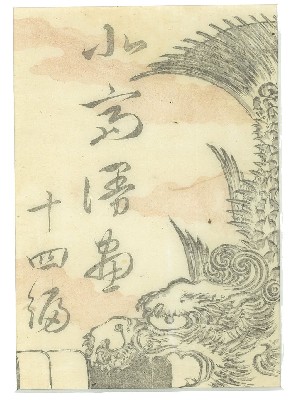 北斎漫画
十四編